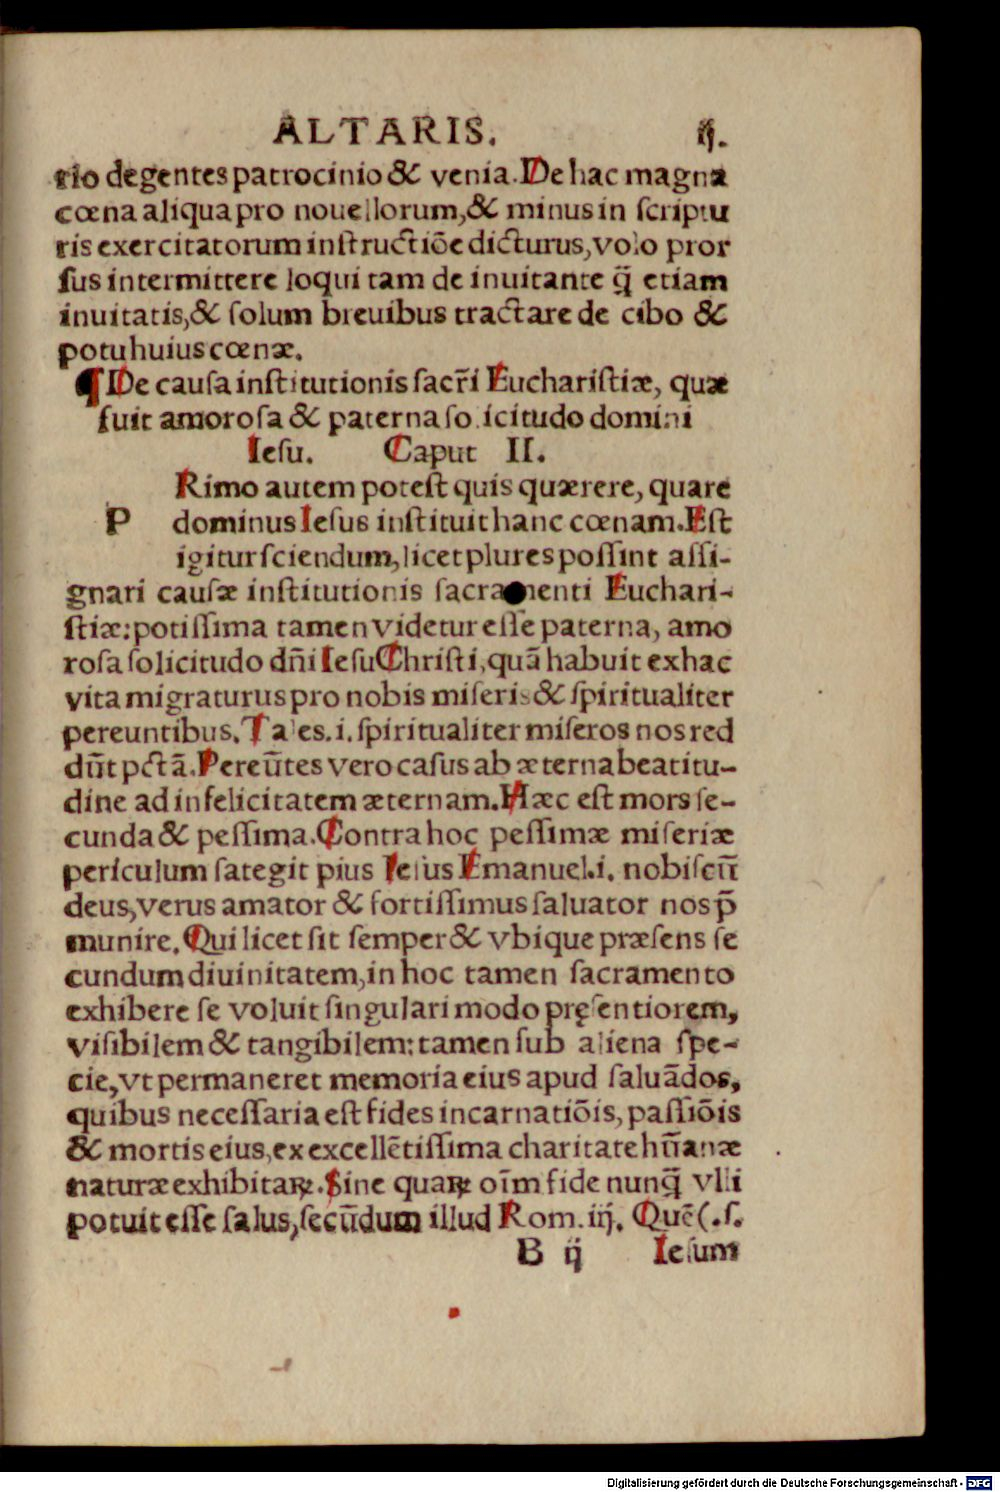 ALTARIS. ij.
rio degentes patrocinio & venia. De hac magna
cœna aliqua pro nouellorum, & minus in scriptu
ris exercitatorum instructiõe dicturus, volo pror
sus intermittere loqui tam de inuitante q̃ etiam
inuitatis, & solum breuibus tractare de cibo &
potu huius cœnæ.
¶ De causa institutionis sacr̃i Eucharistiæ, quæ
fuit amorosa & paterna solicitudo domini
Iesu. Caput II.
Rimo autem potest quis quærere, quare
P dominus Iesus instituit hanc cœnam. Est
igitur sciendum, licet plures possint assi-
gnari causæ institutionis sacramenti Euchari-
stiæ: potissima tamen videtur esse paterna, amo
rosa solicitudo dñi Iesu Christi, quã habuit ex hac
vita migraturus pro nobis miseris & spiritualiter
pereuntibus. Tales .i. spiritualiter miseros nos red
dũt pctã. Pereũtes vero casus ab æterna beatitu-
dine ad infelicitatem æternam. Hæc est mors se-
cunda & pessima. Contra hoc pessimæ miseriæ
periculum sategit pius Iesus Emanuel .i. nobiscũ
deus, verus amator & fortissimus saluator nos p̃
munire. Qui licet sit semper & vbique præsens se
cundum diuinitatem, in hoc tamen sacramento
exhibere se voluit singulari modo pręsentiorem,
visibilem & tangibilem: tamen sub aliena spe-
cie, vt permaneret memoria eius apud saluãdos,
quibus necessaria est fides incarnatiõis, passiõis
& mortis eius, ex excellẽtissima charitate hũanæ
naturæ exhibitaꝝ. Sine quaꝝ oĩm fide nunq̃ vlli
potuit esse salus, secũdum illud Rom. iij. Quẽ (.s.
B ij Iesum
Digitalisierung gefördert durch die Deutsche Forschungsgemeinschaft - DFG